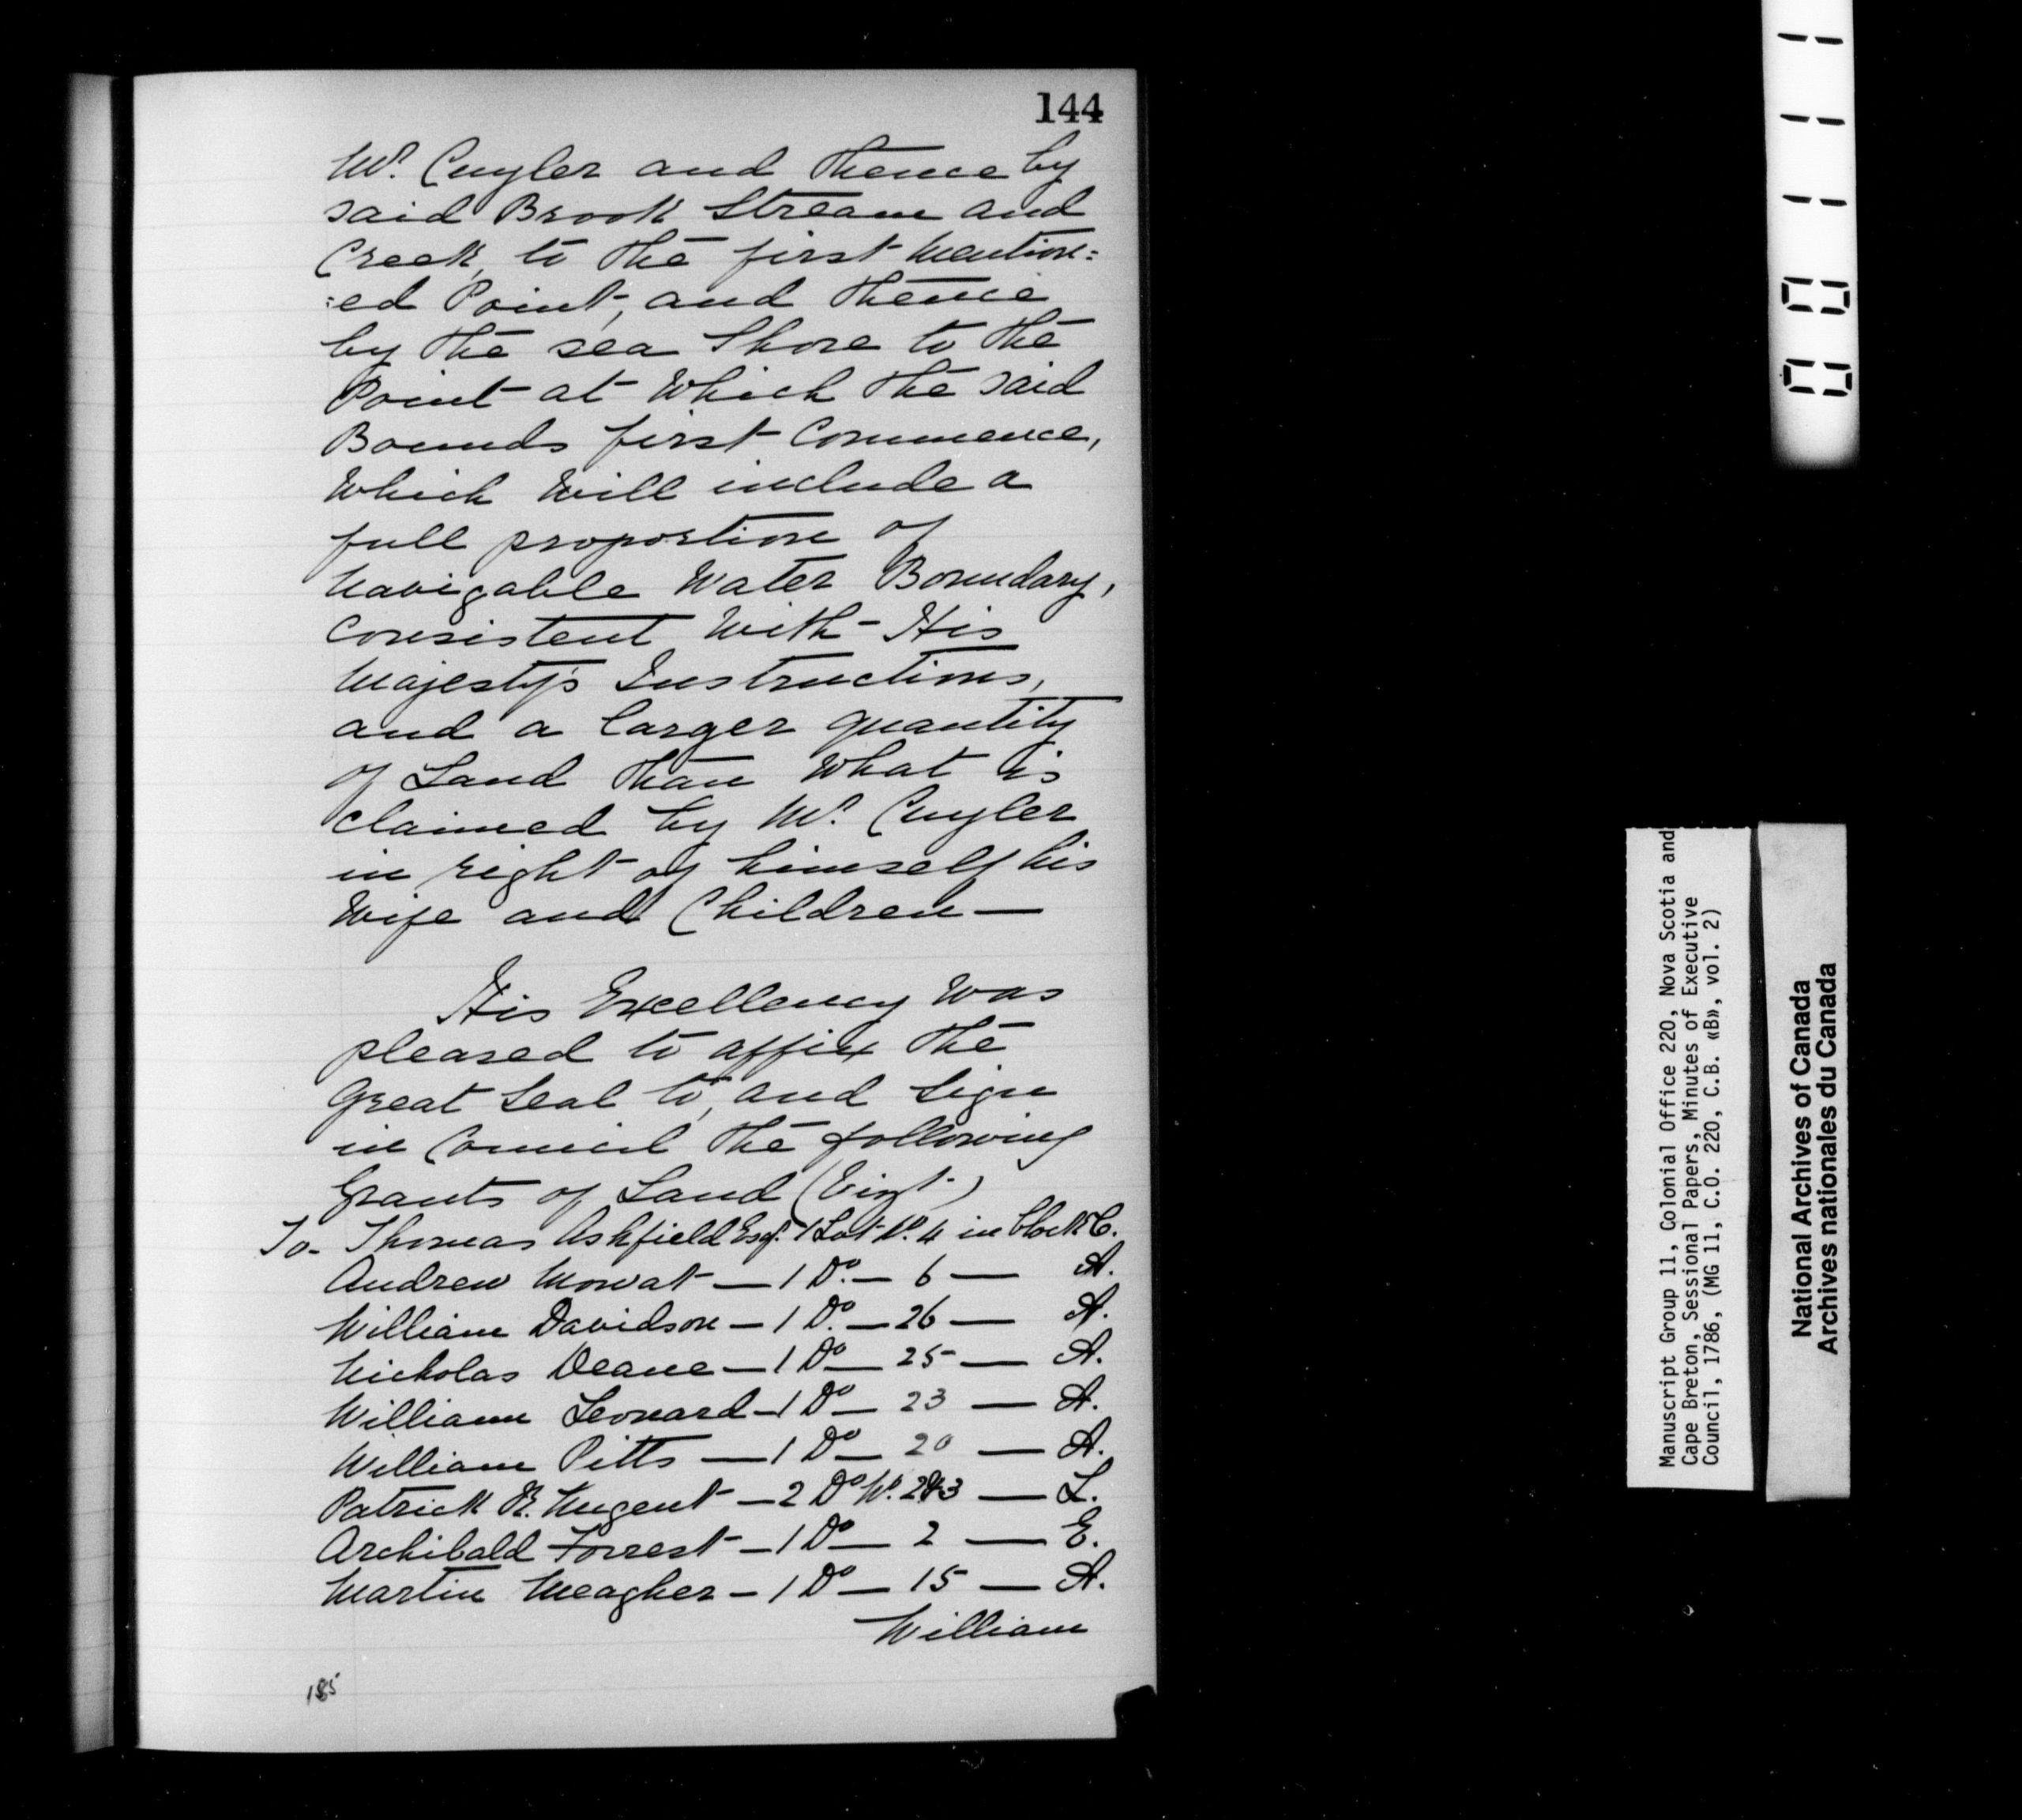 144
Mr. Cuyler and thence by
said Brook Stream and
Creek, to the first mention=
=ed Point, and thence
by the sea Shore to the
Point at Which the said
Bounds first Commence,
Which Will include a
full proportion of
navigable Water Boundary,
Consistent With His
Majesty's Instructions,
and a larger quantity
of Land than What is
claimed by Mr. Cuyler
in right of himself his
Wife and Children —
His Excellency Was
pleased to affix the
Great Seal to, and Sign
in Council the following
Grants of Land (Vizt.)
To- Thomas Ashfield Esqr. 1 Lot No. 4 in block C.
Andrew Mowat — 1 Do. — 6 — A.
William Davidson — 1 Do. — 26 — A.
Nicholas Deane — 1 Do — 25 — A.
William Leonard — 1 Do — 23 — A.
William Pitts — 1 Do — 20 — A.
Patrick R. Nugent — 2 Do No. 2&3 — L.
Archibald Forrest — 1 Do — 2 — E.
Martin Meagher — 1 Do — 15 — A.
William
185
Manuscript Group 11, Colonial Office 220, Nova Scotia and
Cape Breton, Sessional Papers, Minutes of Executive
Council, 1786, (MG 11, C.O. 220, C.B. «B», vol. 2)
National Archives of Canada
Archives nationales du Canada